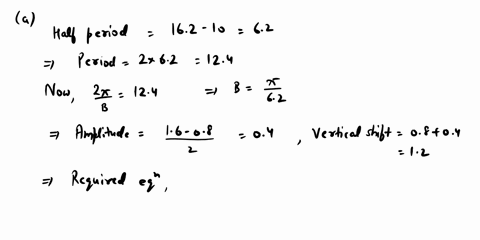 (a)
Half period = 16.2 - 10 = 6.2
⇒ Period = 2×6.2 = 12.4
Now, 2π/B = 12.4 ⇒ B = π/6.2
⇒ Amplitude = (1.6-0.8)/2 = 0.4 , Vertical shift = 0.8+0.4
= 1.2
⇒ Required eqⁿ,